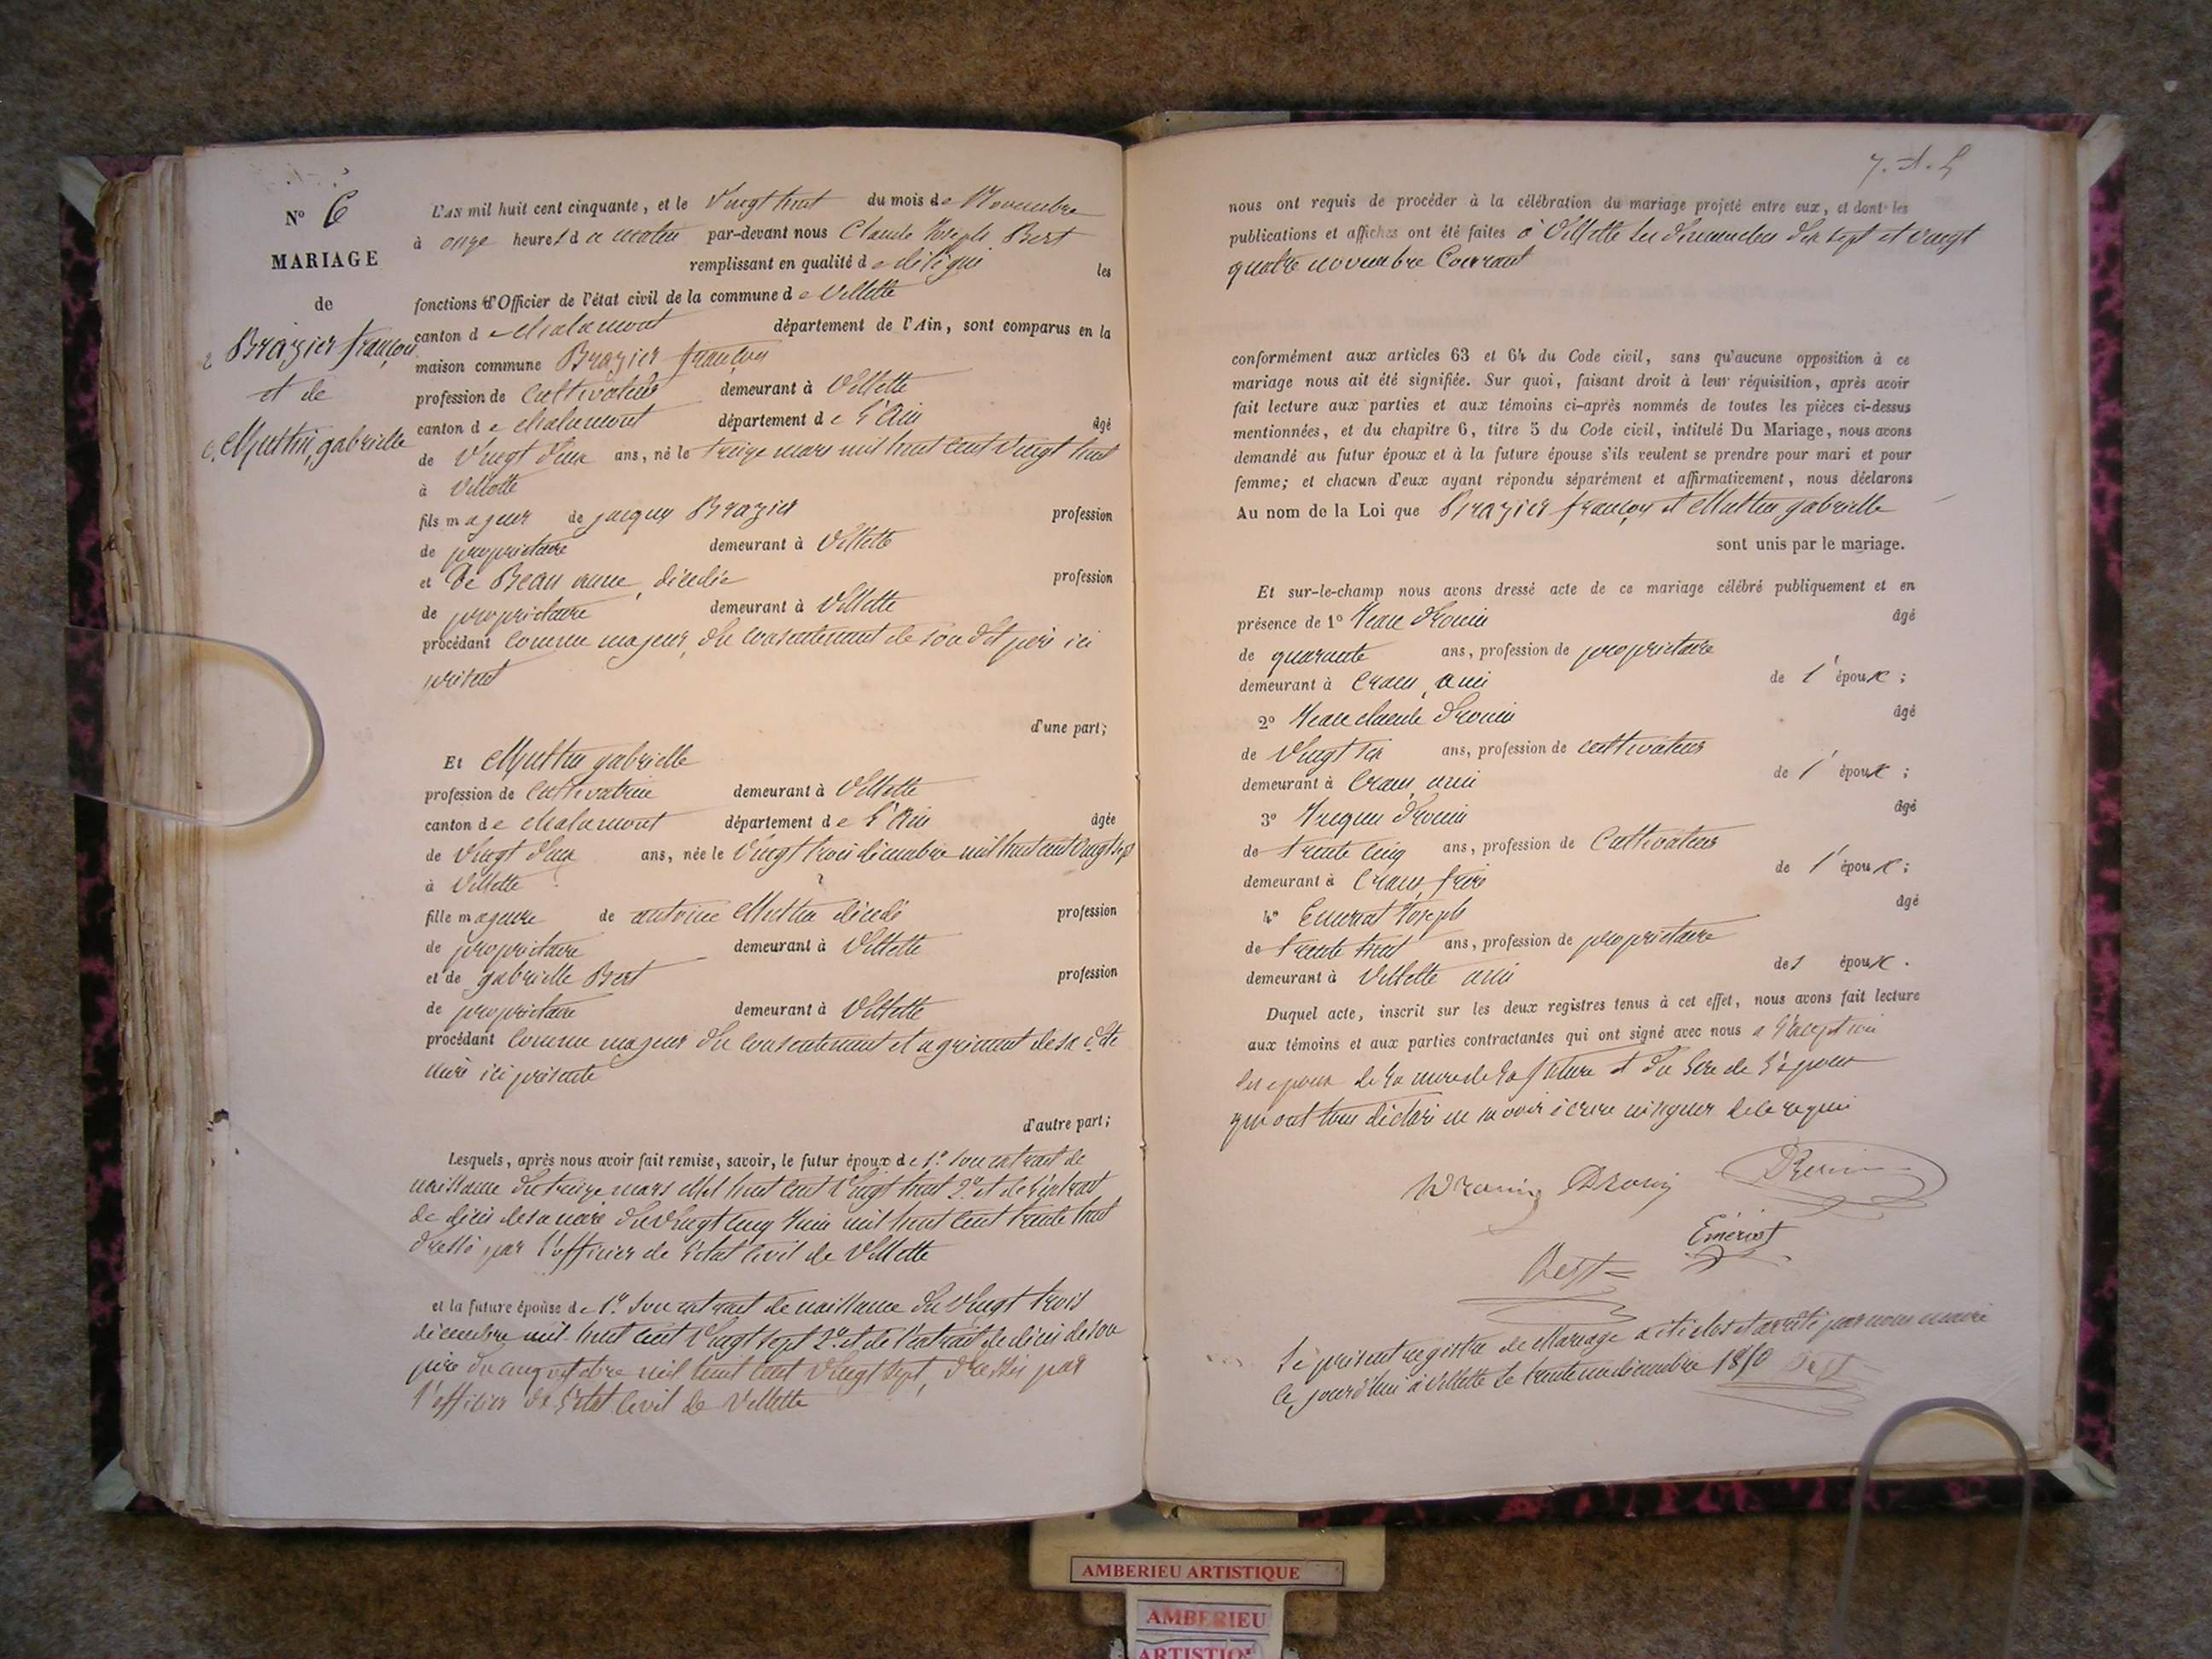 N° 6
MARIAGE
de
Brazier françois
et de
Muttin gabrielle
L'AN mil huit cent cinquante, et le Vingt huit du mois de Novembre
à onze heures du matin par-devant nous Claude Joseph Bert
remplissant en qualité de délégué les
fonctions d'Officier de l'état civil de la commune de Villette
canton de chalamont département de l'Ain, sont comparus en la
maison commune Brazier françois
profession de Cultivateur demeurant à Villette
canton de chalamont département de l'Ain âgé
de Vingt deux ans, né le treize mars mil huit cent vingt huit
à Villette
fils majeur de jacques Brazier profession
de propriétaire demeurant à Villette
et de Beau anne, décédée profession
de propriétaire demeurant à Villette
procédant comme majeur, du consentement de son dit père ici
présent
d'une part;
Et Muttin gabrielle
profession de Cultivatrice demeurant à Villette
canton de chalamont département de l'Ain âgée
de Vingt deux ans, née le Vingt trois décembre mil huit cent vingt sept
à Villette
fille majeure de antoine Muttin décédé profession
de propriétaire demeurant à Villette
et de gabrielle Bert profession
de propriétaire demeurant à Villette
procédant comme majeur du consentement et agrément de sa dte
mère ici présente
d'autre part;
Lesquels, après nous avoir fait remise, savoir, le futur époux de 1° son extrait de
naissance du treize mars Mil huit cent Vingt huit 2° et de l'extrait
de décès de sa mère du Vingt cinq Juin mil huit cent trente huit
dressé par l'officier de l'état Civil de Villette
et la future épouse de 1° son extrait de naissance du Vingt trois
décembre mil huit cent Vingt sept 2° et de l'extrait de décès de son
père du cinq octobre mil huit cent Vingt sept, dressés par
l'officier de l'état Civil de Villette
nous ont requis de procéder à la célébration du mariage projeté entre eux, et dont les
publications et affiches ont été faites à Villette les dimanches dix sept et vingt
quatre novembre Courant
conformément aux articles 63 et 64 du Code civil, sans qu'aucune opposition à ce
mariage nous ait été signifiée. Sur quoi, faisant droit à leur réquisition, après avoir
fait lecture aux parties et aux témoins ci-après nommés de toutes les pièces ci-dessus
mentionnées, et du chapitre 6, titre 5 du Code civil, intitulé Du Mariage, nous avons
demandé au futur époux et à la future épouse s'ils veulent se prendre pour mari et pour
femme; et chacun d'eux ayant répondu séparément et affirmativement, nous déclarons
Au nom de la Loi que Brazier françois et Muttin gabrielle
sont unis par le mariage.
Et sur-le-champ nous avons dressé acte de ce mariage célébré publiquement et en
présence de 1° Jean Drouin âgé
de quarante ans, profession de propriétaire
demeurant à Crans, ami de l'époux;
2° Jean claude Drouin âgé
de Vingt six ans, profession de cultivateur
demeurant à Crans, ami de l'époux;
3° Jacques Drouin âgé
de trente cinq ans, profession de Cultivateur
demeurant à Crans, frère de l'époux;
4° Emeriat Joseph âgé
de trente huit ans, profession de propriétaire
demeurant à Villette ami des époux.
Duquel acte, inscrit sur les deux registres tenus à cet effet, nous avons fait lecture
aux témoins et aux parties contractantes qui ont signé avec nous a l'éxception
des epoux de la mere de la future et du Père de l'époux
qui ont tous déclaré ne savoir écrire ni signer de ce requis
Drouin Drouin
Emériat
Bert
Le présent registre de Mariage a été clos et arrêté par nous maire
ce jourd'hui à Villette le trente un décembre 1850 Bert
AMBERIEU ARTISTIQUE
AMBERIEU